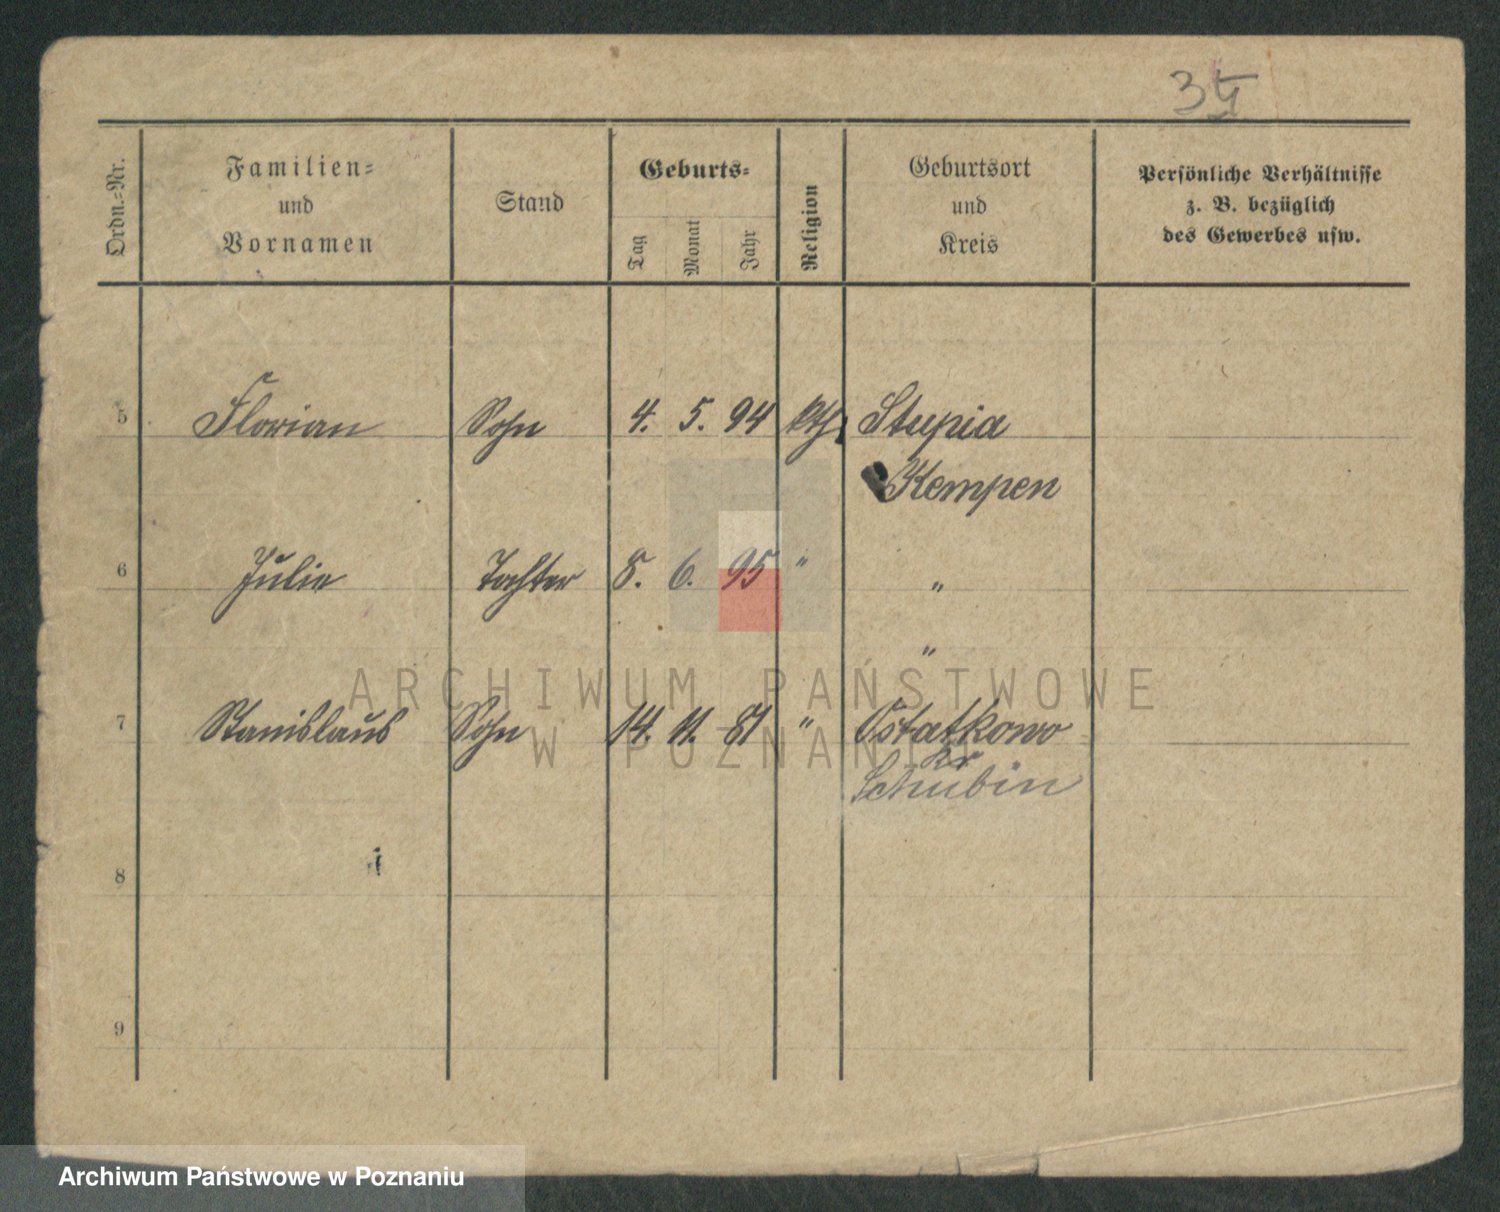 35
Ordn.-Nr.
Familien-
und
Vornamen
Stand
Geburts-
Tag
Monat
Jahr
Religion
Geburtsort
und
Kreis
Persönliche Verhältnisse
z. B. bezüglich
des Gewerbes usw.
5 Florian Sohn 4. 5. 94 kth. Stupia
Kempen
6 Julie Tochter 8. 6. 95 " "
"
7 Stanislaus Sohn 14. 11. 81 " Ostatkowo
Kr
Schubin
8
9
ARCHIWUM PAŃSTWOWE
W POZNANIU
Archiwum Państwowe w Poznaniu